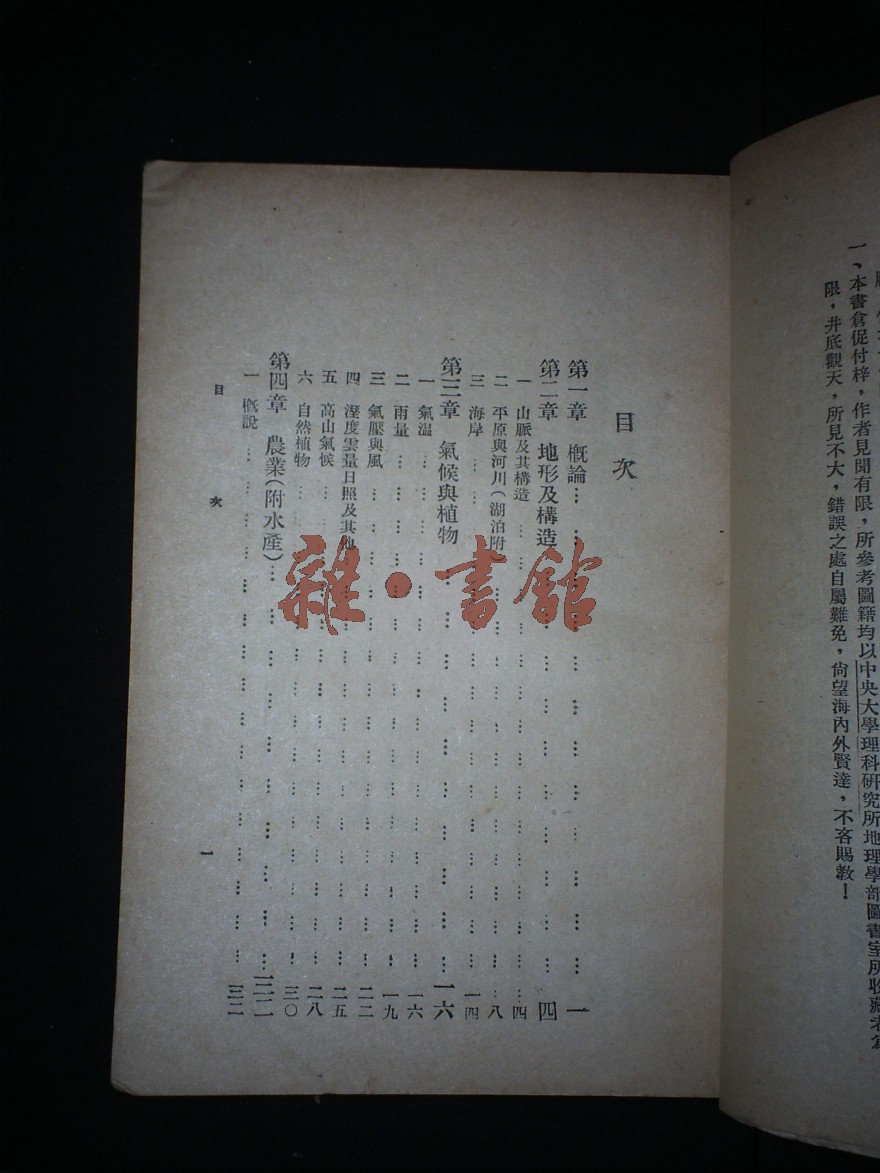 一、本書倉促付梓，作者見聞有限，所參考圖籍均以中央大學理科研究所地理學部圖書室所收藏者為
限，井底觀天，所見不大，錯誤之處自屬難免，尚望海內外賢達，不吝賜教！
目次
第一章 概論 一
第二章 地形及構造 四
一 山脈及其構造 四
二 平原與河川（湖泊附） 八
三 海岸 一四
第三章 氣候與植物 一六
一 氣溫 一六
二 雨量 一九
三 氣壓與風 二二
四 溼度雲量日照及其他 二五
五 高山氣候 二八
六 自然植物 三〇
第四章 農業（附水產） 三二
一 概說 三二
目次 一
雜·書館